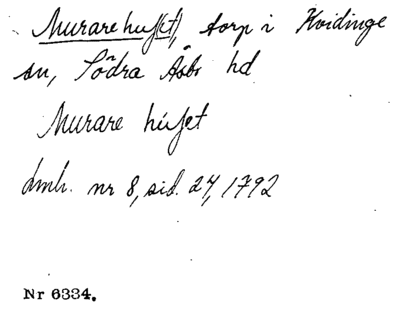 Murarehuset, torp i Kvidinge
sn, Södra Åsbo hd
Murare huset
dmh. nr 8, sid. 27, 1792
Nr 6334.